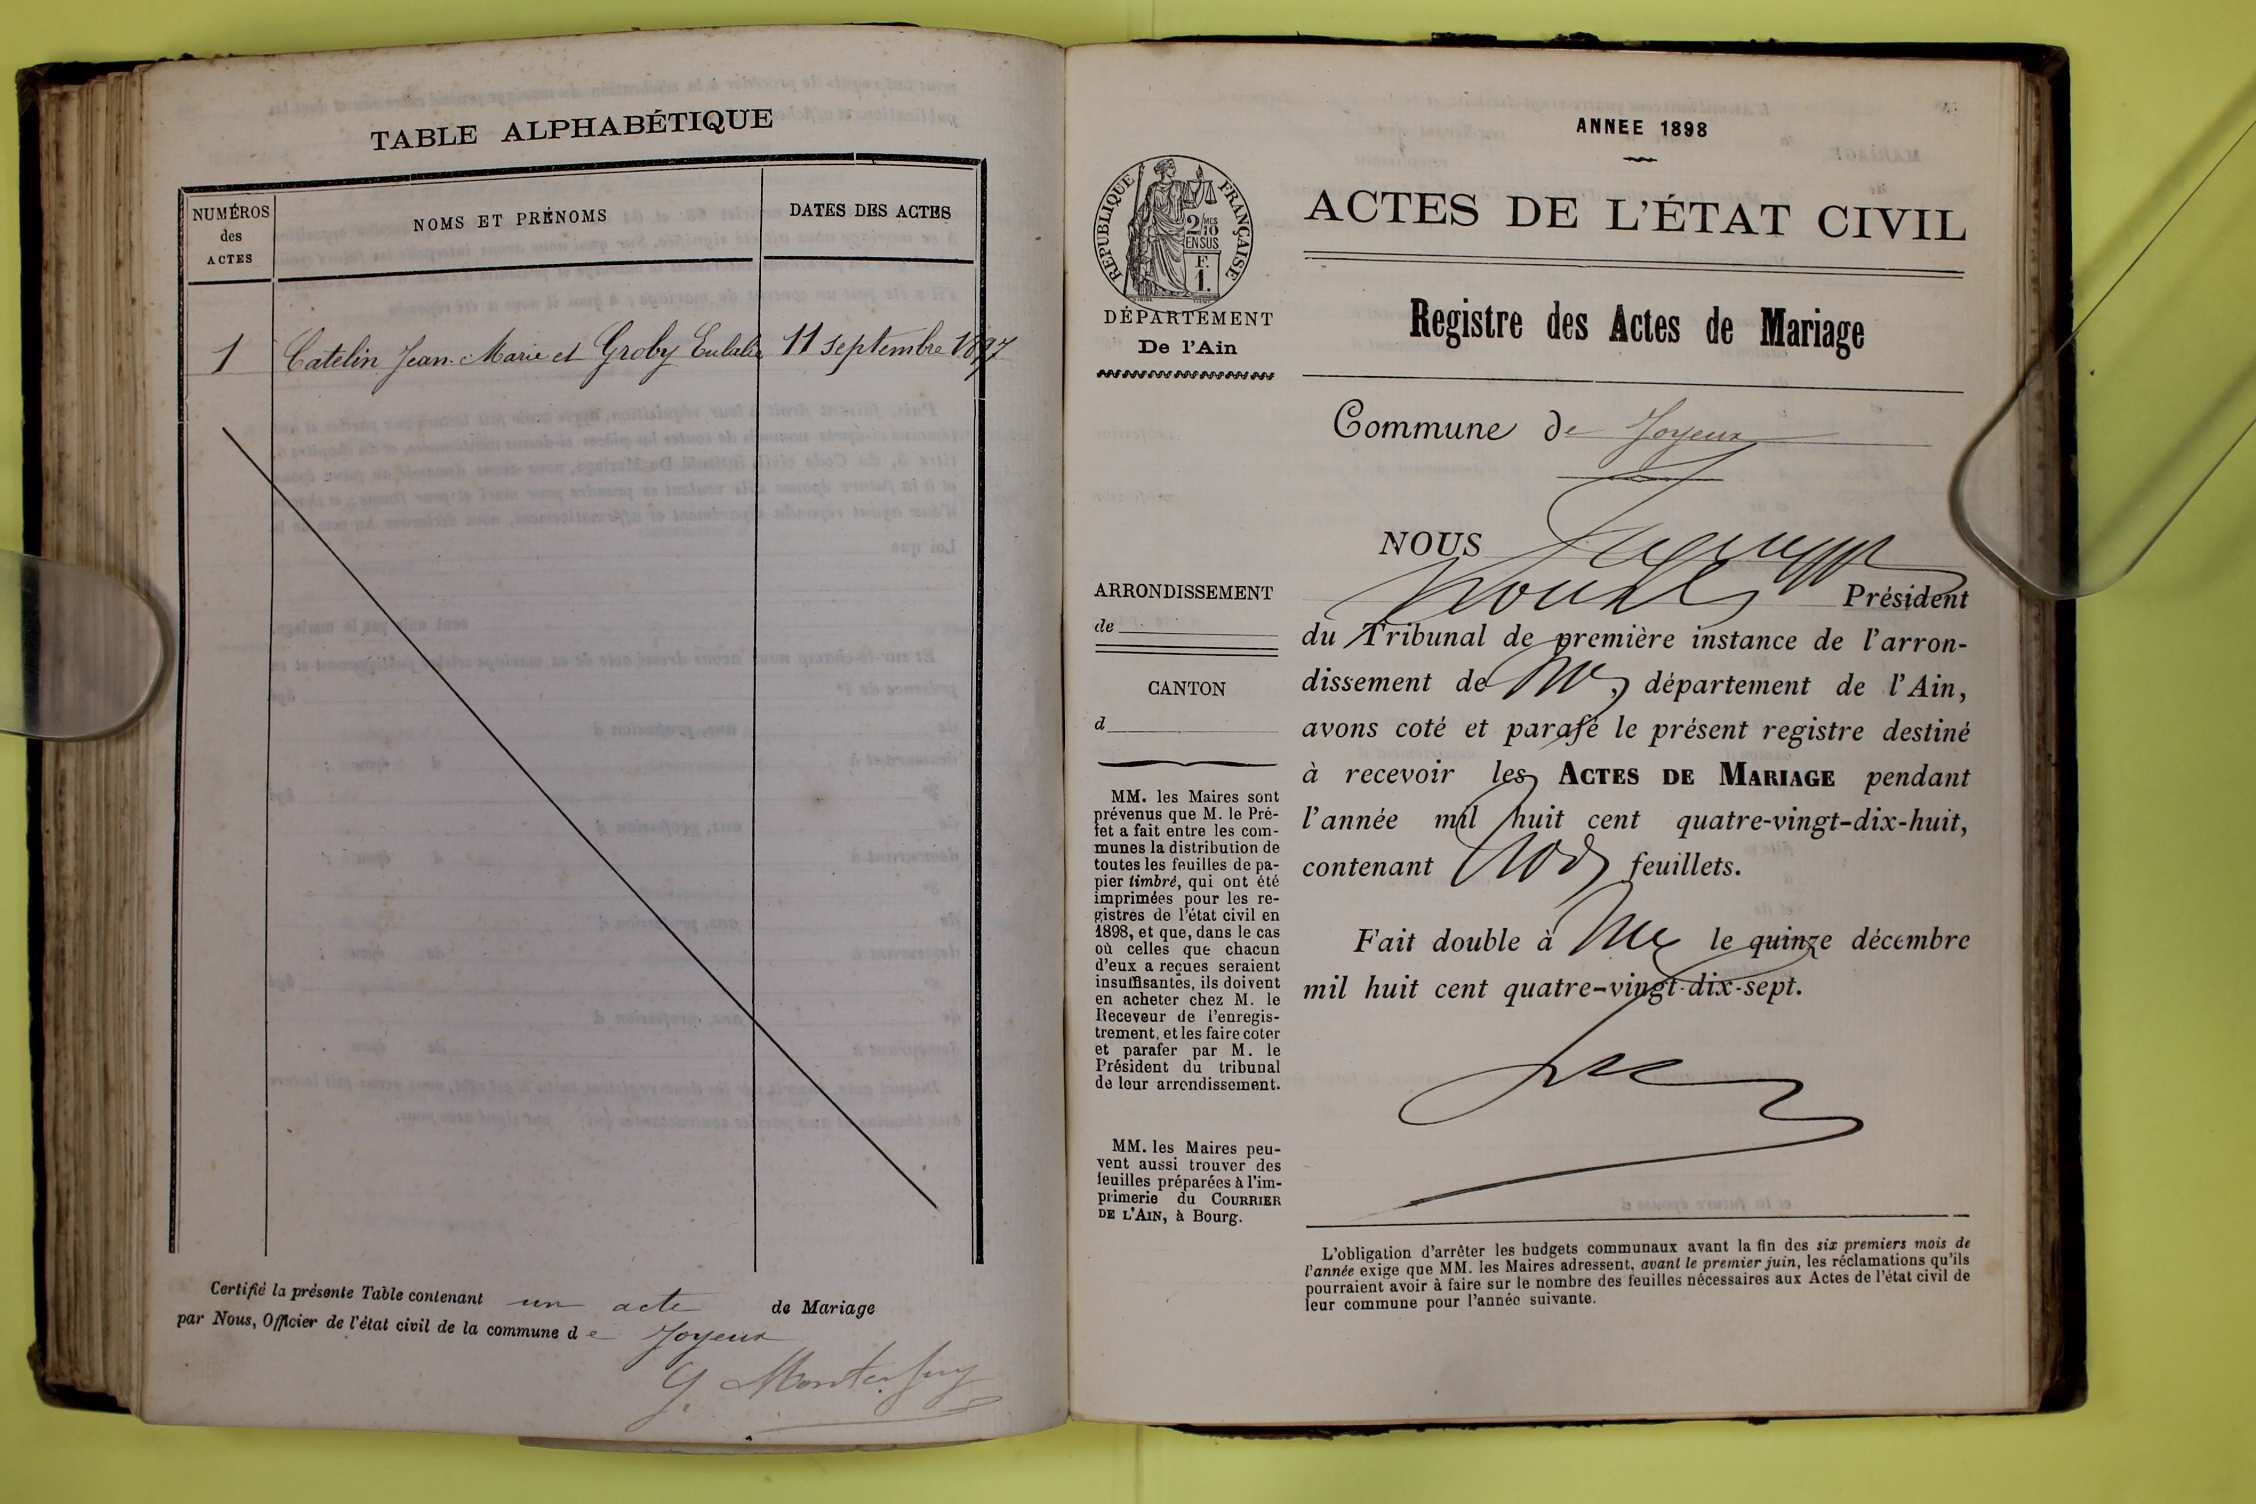 TABLE ALPHABÉTIQUE
NUMÉROS
des
ACTES
NOMS ET PRÉNOMS
DATES DES ACTES
1 Catelin Jean-Marie et Groby Eulalie 11 septembre 1897
Certifié la présente Table contenant un acte de Mariage
par Nous, Officier de l'état civil de la commune de Joyeux
ANNEE 1898
RÉPUBLIQUE FRANÇAISE
2/10
EN SUS
F.
1.
DÉPARTEMENT
De l'Ain
ARRONDISSEMENT
de
CANTON
d
MM. les Maires sont
prévenus que M. le Pré-
fet a fait entre les com-
munes la distribution de
toutes les feuilles de pa-
pier timbré, qui ont été
imprimées pour les re-
gistres de l'état civil en
1898, et que, dans le cas
où celles que chacun
d'eux a reçues seraient
insuffisantes, ils doivent
en acheter chez M. le
Receveur de l'enregis-
trement, et les faire coter
et parafer par M. le
Président du tribunal
de leur arrondissement.
MM. les Maires peu-
vent aussi trouver des
feuilles préparées à l'im-
primerie du COURRIER
DE L'AIN, à Bourg.
ACTES DE L'ÉTAT CIVIL
Registre des Actes de Mariage
Commune de Joyeux
NOUS
Président
du Tribunal de première instance de l'arron-
dissement de , département de l'Ain,
avons coté et parafé le présent registre destiné
à recevoir les ACTES DE MARIAGE pendant
l'année mil huit cent quatre-vingt-dix-huit,
contenant feuillets.
Fait double à le quinze décembre
mil huit cent quatre-vingt-dix-sept.
L'obligation d'arrêter les budgets communaux avant la fin des six premiers mois de
l'année exige que MM. les Maires adressent, avant le premier juin, les réclamations qu'ils
pourraient avoir à faire sur le nombre des feuilles nécessaires aux Actes de l'état civil de
leur commune pour l'année suivante.